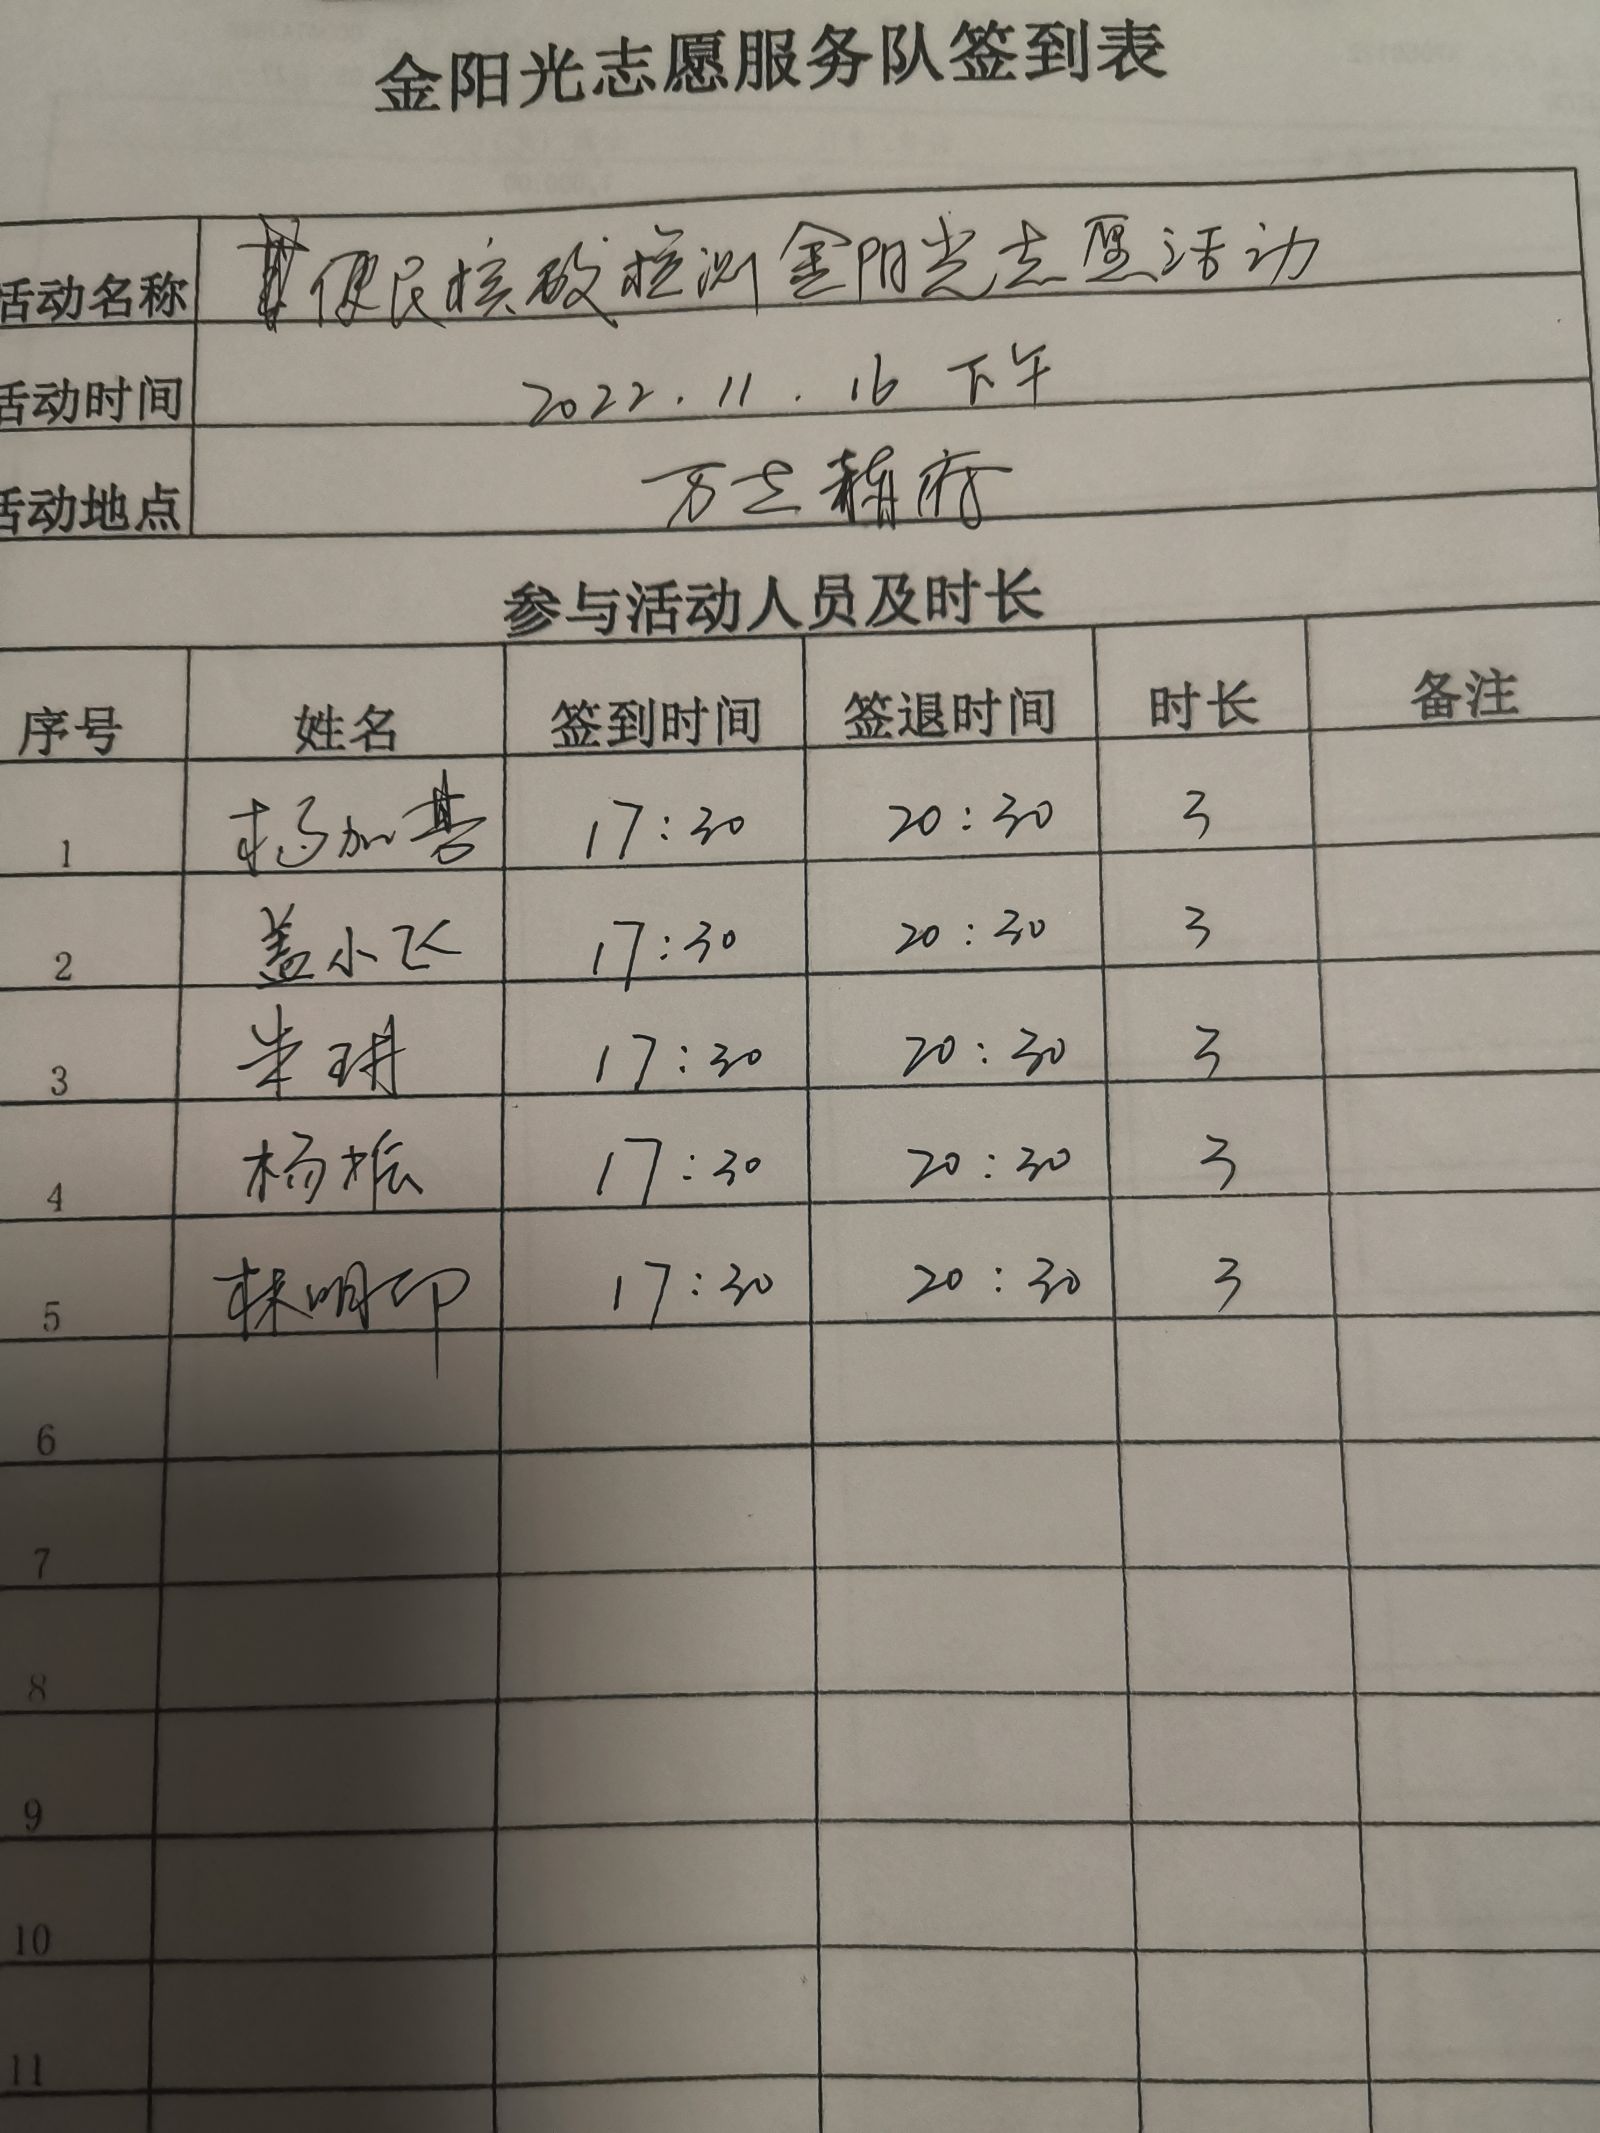 金阳光志愿服务队签到表
活动名称 便民核酸检测金阳光志愿活动
活动时间 2022.11.16 下午
活动地点 万志 府
参与活动人员及时长
序号 姓名 签到时间 签退时间 时长 备注
1 杨加善 17:30 20:30 3
2 盖小飞 17:30 20:30 3
3 朱玥 17:30 20:30 3
4 杨栋 17:30 20:30 3
5 林明印 17:30 20:30 3
6
7
8
9
10
11